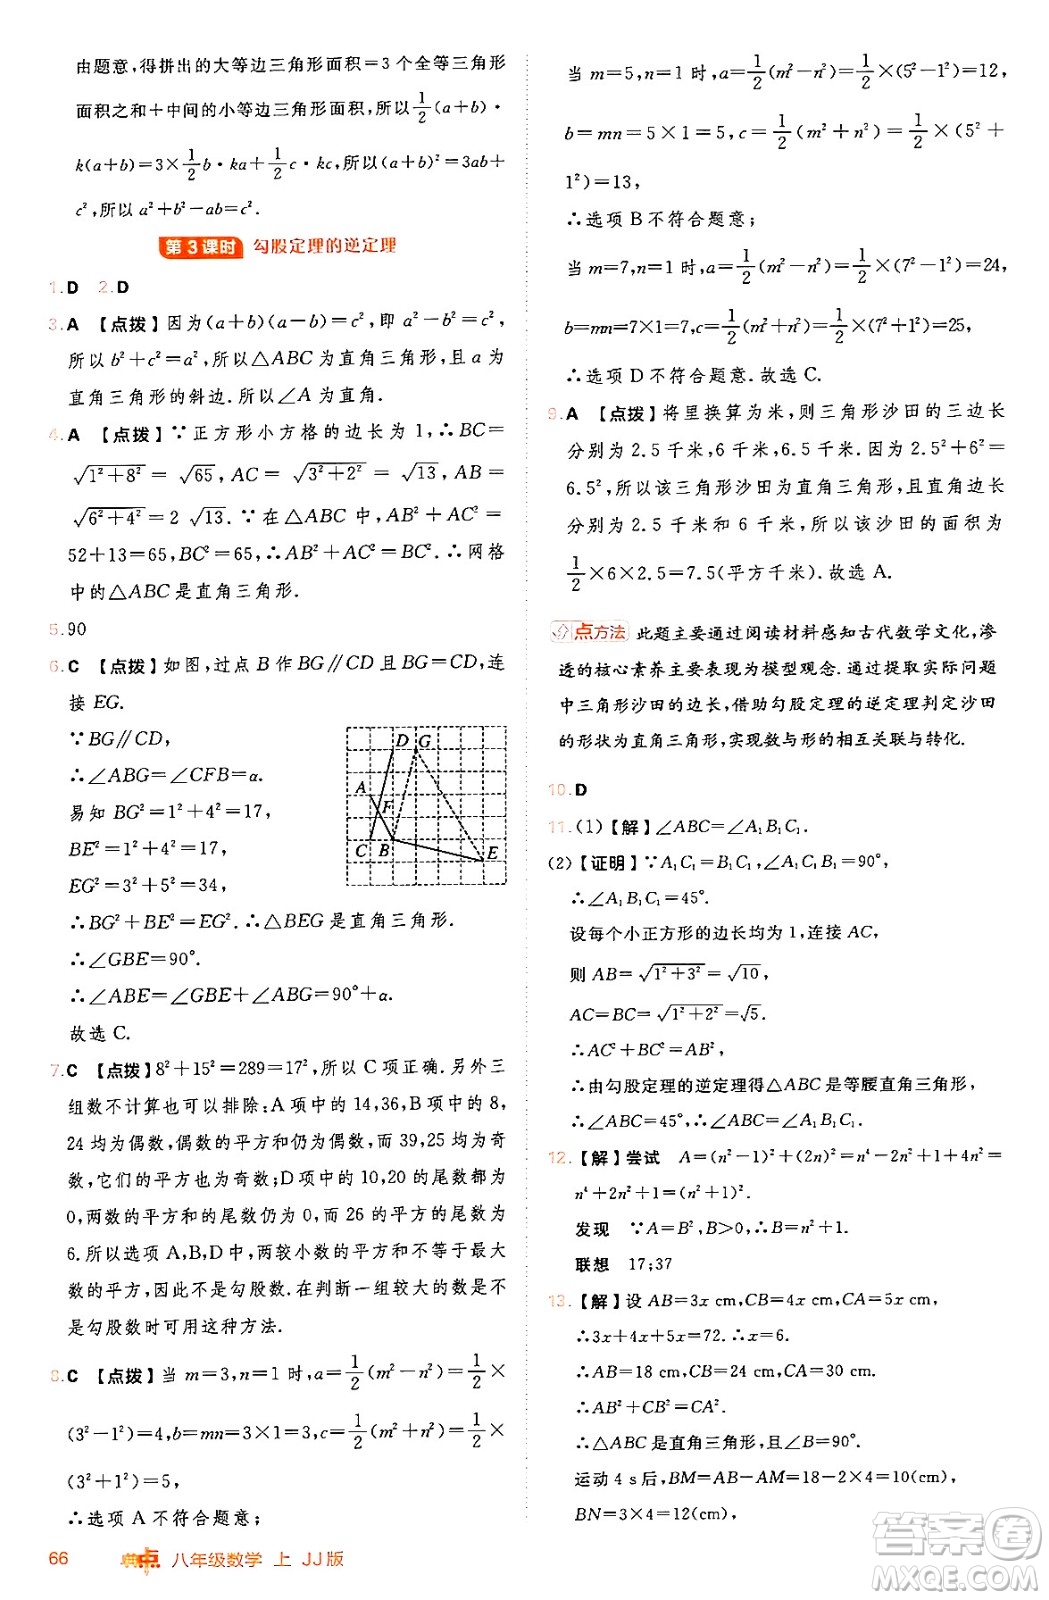 由题意,得拼出的大等边三角形面积=3 个全等三角形
面积之和+中间的小等边三角形面积,所以1/2(a+b)·
k(a+b)=3×1/2b·ka+1/2c·kc,所以(a+b)²=3ab+
c²,所以 a²+b²-ab=c².
第3课时 勾股定理的逆定理
1. D 2. D
3. A 【点拨】因为(a+b)(a-b)=c²,即 a²-b²=c²,
所以 b²+c²=a²,所以△ABC 为直角三角形,且 a 为
直角三角形的斜边.所以∠A 为直角.
4. A 【点拨】∵正方形小方格的边长为 1,∴BC=
√(1²+8²)=√65,AC=√(3²+2²)=√13,AB=
√(6²+4²)=2√13.∵在△ABC中,AB²+AC²=
52+13=65,BC²=65,∴AB²+AC²=BC².∴网格
中的△ABC是直角三角形.
5. 90
6. C 【点拨】如图,过点 B 作 BG∥CD且 BG=CD,连
接 EG.
∵BG∥CD,
∴∠ABG=∠CFB=α.
易知 BG²=1²+4²=17,
BE²=1²+4²=17,
EG²=3²+5²=34,
D G
A
F
C B
E
∴BG²+BE²=EG².∴△BEG 是直角三角形.
∴∠GBE=90°.
∴∠ABE=∠GBE+∠ABG=90°+α.
故选 C.
7. C 【点拨】8²+15²=289=17²,所以 C 项正确.另外三
组数不计算也可以排除:A 项中的 14,36,B 项中的 8,
24 均为偶数,偶数的平方和仍为偶数,而 39,25 均为奇
数,它们的平方也为奇数;D 项中的 10,20 的尾数都为
0,两数的平方和的尾数仍为 0,而 26 的平方的尾数为
6.所以选项 A,B,D 中,两较小数的平方和不等于最大
数的平方,因此不是勾股数.在判断一组较大的数是不
是勾股数时可使用这种方法.
8. C 【点拨】当 m=3,n=1 时,a=1/2(m²-n²)=1/2×
(3²-1²)=4,b=mn=3×1=3,c=1/2(m²+n²)=1/2×
(3²+1²)=5,
∴选项 A 不符合题意;
66 典中点 八年级数学 上 JJ版
当 m=5,n=1 时,a=1/2(m²-n²)=1/2×(5²-1²)=12,
b=mn=5×1=5,c=1/2(m²+n²)=1/2×(5²+
1²)=13,
∴选项 B 不符合题意;
当 m=7,n=1时,a=1/2(m²-n²)=1/2×(7²-1²)=24,
b=mn=7×1=7,c=1/2(m²+n²)=1/2×(7²+1²)=25,
∴选项 D 不符合题意.故选 C.
9. A 【点拨】将里换算为米,则三角形沙田的三边长
分别为 2.5 千米,6 千米,6.5 千米.因为 2.5²+6²=
6.5²,所以该三角形沙田为直角三角形,且直角边长
分别为 2.5 千米和 6 千米,所以该沙田的面积为
1/2×6×2.5=7.5(平方千米).故选 A.
点方法 此题主要通过阅读材料感知古代数学文化,渗
透的核心素养主要表现为模型观念.通过提取实际问题
中三角形沙田的边长,借助勾股定理的逆定理判定沙田
的形状为直角三角形,实现数与形的相互关联与转化.
10. D
11. (1)【解】∠ABC=∠A₁B₁C₁.
(2)【证明】∵A₁C₁=B₁C₁,∠A₁C₁B₁=90°,
∴∠A₁B₁C₁=45°.
设每个小正方形的边长均为 1,连接 AC,
则 AB=√(1²+3²)=√10,
AC=BC=√(1²+2²)=√5.
∴AC²+BC²=AB².
∴由勾股定理的逆定理得△ABC是等腰直角三角形,
∴∠ABC=45°,∴∠ABC=∠A₁B₁C₁.
12. 【解】尝试 A=(n²-1)²+(2n)²=n⁴-2n²+1+4n²=
n⁴+2n²+1=(n²+1)².
发现 ∵A=B²,B>0,∴B=n²+1.
联想 17;37
13. 【解】设 AB=3x cm,CB=4x cm,CA=5x cm,
∴3x+4x+5x=72.∴x=6.
∴AB=18 cm,CB=24 cm,CA=30 cm.
∴AB²+CB²=CA².
∴△ABC是直角三角形,且∠B=90°.
运动 4 s后,BM=AB-AM=18-2×4=10(cm),
BN=3×4=12(cm),
答案圈
MXQE.COM